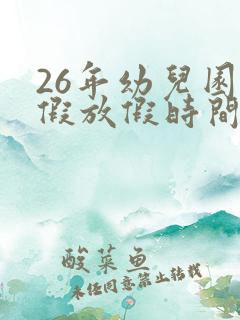 26年幼兒園
假放假時間
酸菜魚
未经同意禁止转载